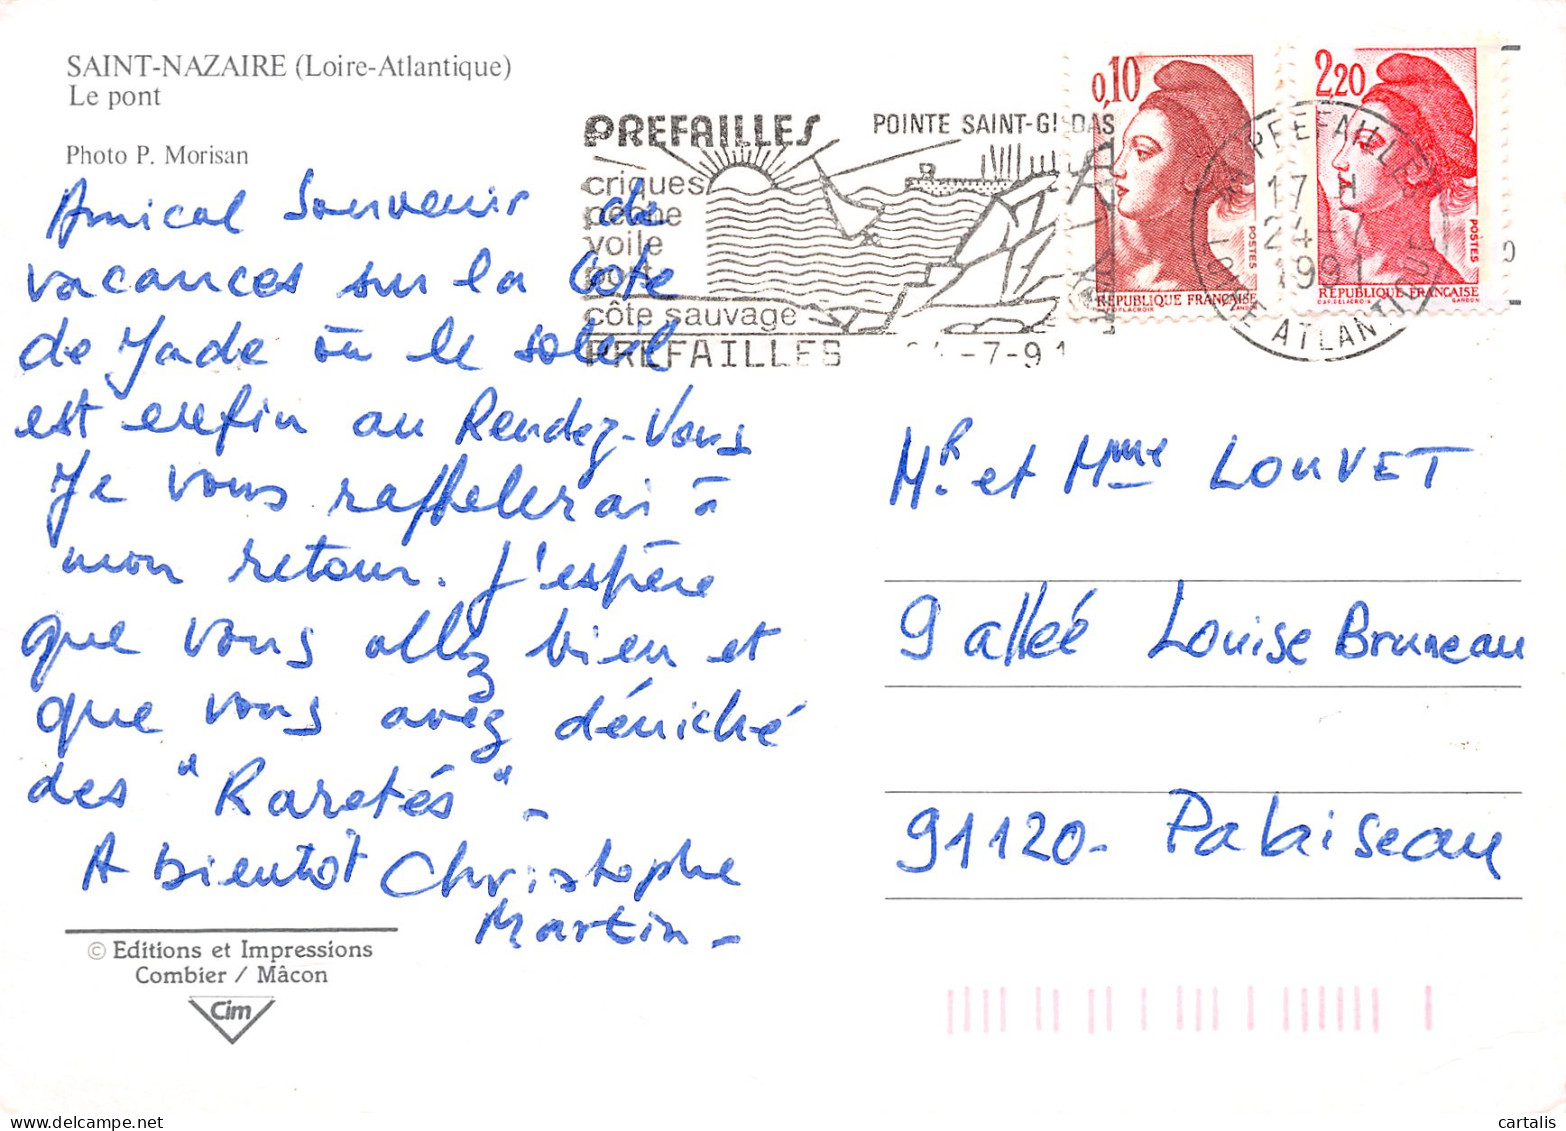 SAINT-NAZAIRE (Loire-Atlantique)
Le pont
Photo P. Morisan
Amical Souvenir de
vacances sur la Côte
de Jade où le soleil
est enfin au Rendez-Vous
Je vous rappelerai à
mon retour. J'espère
que vous allez bien et
que vous avez déniché
des "Raretés" -
A bientôt Christophe
Martin -
© Editions et Impressions
Combier / Mâcon
Cim
PREFAILLES POINTE SAINT-GILDAS
criques
pêche
voile
port
côte sauvage
PREFAILLES 24-7-91
0,10
POSTES
RÉPUBLIQUE FRANÇAISE
2,20
POSTES
RÉPUBLIQUE FRANÇAISE
D'AP. DELACROIX GANDON
PREFAILLES
17 H
24-7
1991
LOIRE ATLANTIQUE
Mr. et Mme LOUVET
9 alleé Louise Bruneau
91120 - Palaiseau
cartalis